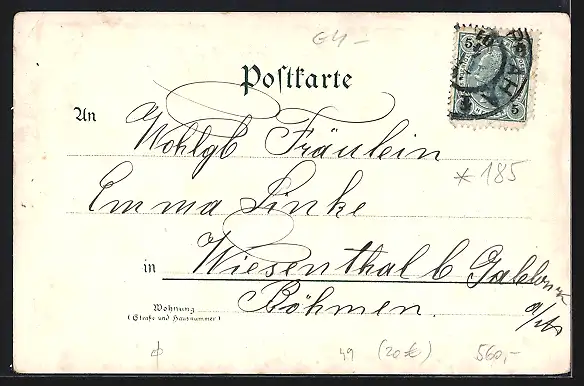 G4-
Postkarte
5 5
5
An
Wohlgb Fräulein
* 185
Emma Linke
in Wiesenthal b Gablonz
a/N
Wohnung
(Straße und Hausnummer)
Böhmen.
49 (20€) 560,-